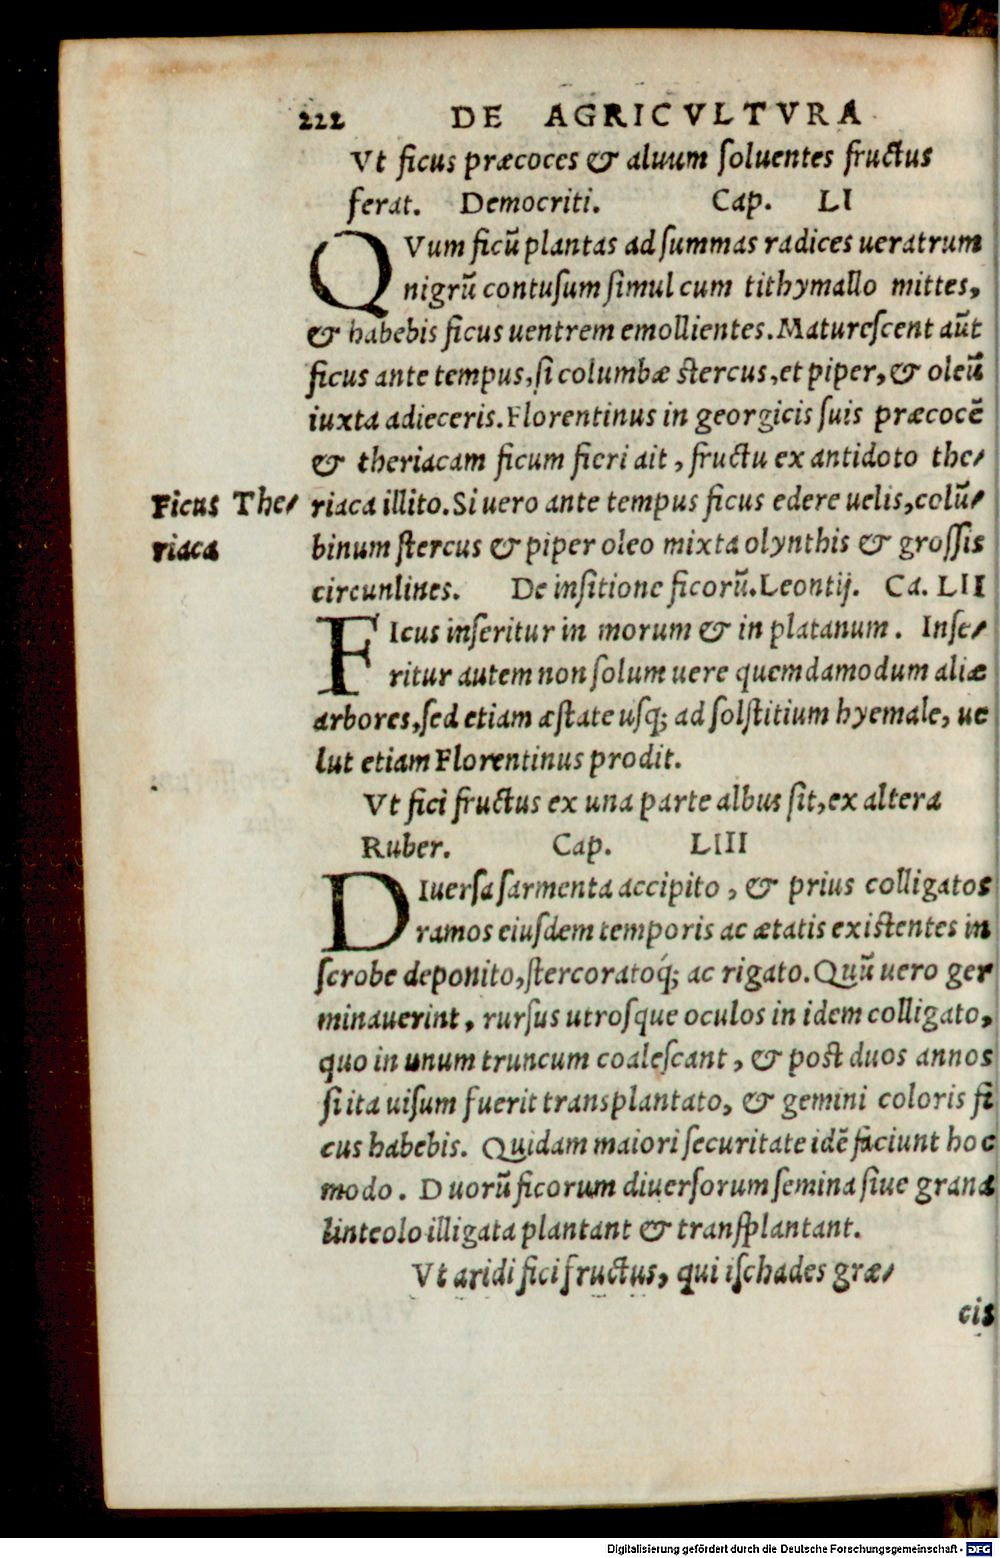 222 DE AGRICVLTVRA
Vt ficus præcoces & aluum ſoluentes fructus
ferat. Democriti. Cap. LI
QVum ficū plantas ad ſummas radices ueratrum
nigrū contuſum ſimul cum tithymallo mittes,
& habebis ficus uentrem emollientes. Matureſcent aūt
ficus ante tempus, ſi columbæ stercus, et piper, & oleū
iuxta adieceris. Florentinus in georgicis ſuis præcocē
& theriacam ficum fieri ait, fructu ex antidoto the-
Ficus The-
riaca
riaca illito. Si uero ante tempus ficus edere uelis, colū-
binum ſtercus & piper oleo mixta olynthis & groſſis
circunlines. De inſitione ficorū. Leontij. Ca. LII
FIcus inſeritur in morum & in platanum. Inſe-
ritur autem non ſolum uere quemdamodum aliæ
arbores, ſed etiam æſtate uſq; ad ſolſtitium hyemale, ue
lut etiam Florentinus prodit.
Vt fici fructus ex una parte albus ſit, ex altera
Ruber. Cap. LIII
DIuerſa ſarmenta accipito, & prius colligatos
ramos eiuſdem temporis ac ætatis existentes in
ſcrobe deponito, ſtercoratoq́; ac rigato. Quū uero ger
minauerint, rurſus utroſque oculos in idem colligato,
quo in unum truncum coaleſcant, & post duos annos
ſi ita uiſum fuerit transplantato, & gemini coloris fi
cus habebis. Quidam maiori ſecuritate idē faciunt hoc
modo. Duorū ficorum diuerſorum ſemina ſiue grana
linteolo illigata plantant & tranſplantant.
Vt aridi fici fructus, qui iſchades græ-
cis
Digitalisierung gefördert durch die Deutsche Forschungsgemeinschaft - DFG